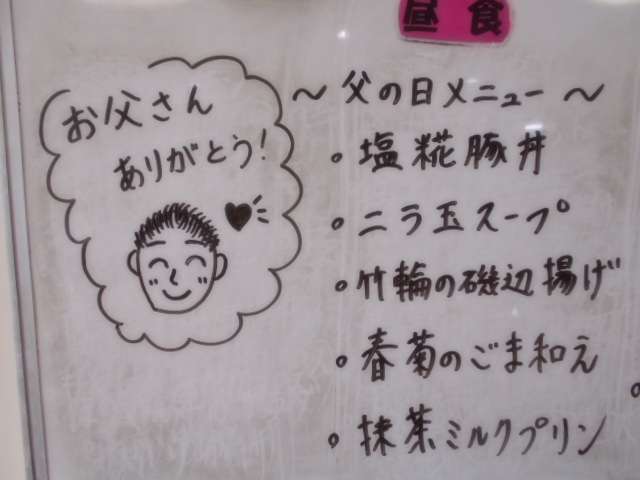 昼食
お父さん
ありがとう!
～父の日メニュー～
。塩糀豚丼
。ニラ玉スープ
。竹輪の磯辺揚げ
。春菊のごま和え
。抹茶ミルクプリン